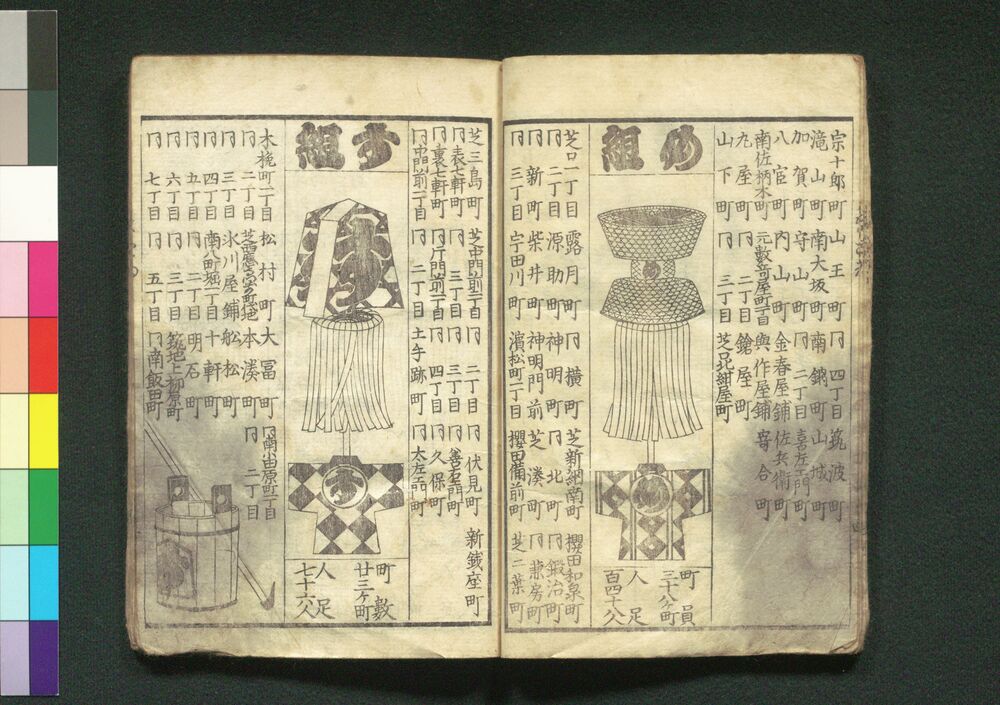 宗十郎町 山王町 冂四丁目 筑波町
滝山町 南大坂町 南鍋町 山城町
加賀町 守山町 冂二丁目 喜左エ門町
八官町 内山町 金春屋鋪 佐兵衛町
南佐柄木町 元數寄屋町一丁目 與作屋鋪 寄合町
九屋町 冂二丁目 鎗屋町
山下町 冂三丁目 芝口北紺屋町
組
町員
三十八ヶ町
人足
百四十八人
芝口一丁目 露月町 冂横町 芝新網南町 櫻田和泉町
冂二丁目 源助町 神明町 冂北町 冂鍛冶町
冂新町 柴井町 神明門前 芝湊町 冂兼房町
冂三丁目 宇田川町 濱松町一丁目 櫻田備前町 芝二葉町
芝三島町 芝中門前一丁目 冂二丁目 冂伏見町 新錢座町
冂表七軒町 冂三丁目 冂三丁目 冂善右エ門町
冂裏七軒町 冂片門前一丁目 冂四丁目 冂久保町
冂中門前一丁目 冂二丁目 土手跡町 冂太左エ門町
組
町數
廿三ヶ町
人足
七十六人
木挽町一丁目 松村町 大冨町 冂南小田原町一丁目
冂二丁目 本湊町 冂二丁目
冂三丁目 氷川屋鋪 船松町
冂四丁目 南八町堀一丁目 十軒町
冂五丁目 冂二丁目 明石町
冂六丁目 冂三丁目 築地上柳原町
冂七丁目 冂五丁目 冂南飯田町